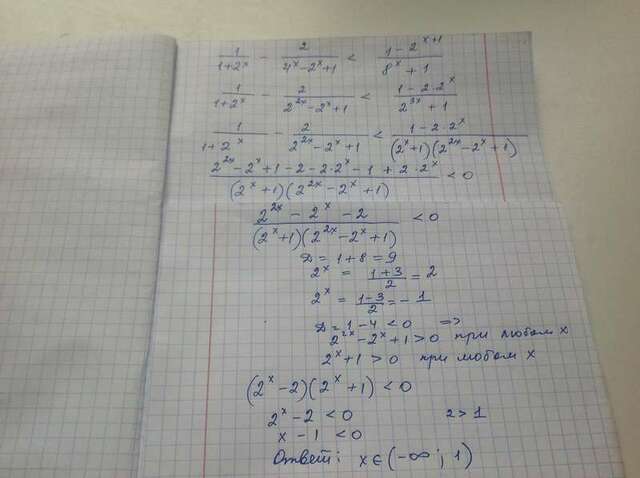 1/(1+2^x) - 2/(4^x-2^x+1) < (1-2^(x+1))/(8^x+1)
1/(1+2^x) - 2/(2^(2x)-2^x+1) < (1-2·2^x)/(2^(3x)+1)
1/(1+2^x) - 2/(2^(2x)-2^x+1) < (1-2·2^x)/((2^x+1)(2^(2x)-2^x+1))
(2^(2x)-2^x+1-2-2·2^x-1+2·2^x)/((2^x+1)(2^(2x)-2^x+1)) < 0
(2^(2x)-2^x-2)/((2^x+1)(2^(2x)-2^x+1)) < 0
D = 1+8 = 9
2^x = (1+3)/2 = 2
2^x = (1-3)/2 = -1
D = 1-4 < 0 =>
2^(2x)-2^x+1>0 при любом x
2^x+1>0 при любом x
(2^x-2)(2^x+1)<0
2^x-2<0 2>1
x-1<0
Ответ: x∈(-∞; 1)